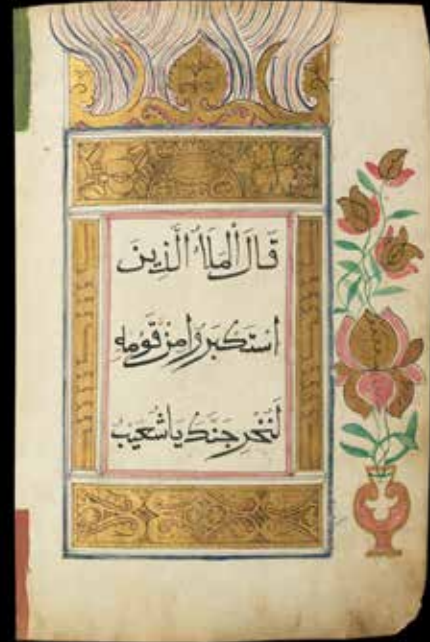 قَالَ ٱلْمَلَأُ الَّذِينَ
اسْتَكْبَرُوا مِنْ قَوْمِهِ
لَنُخْرِجَنَّكَ يَا شُعَيْبُ